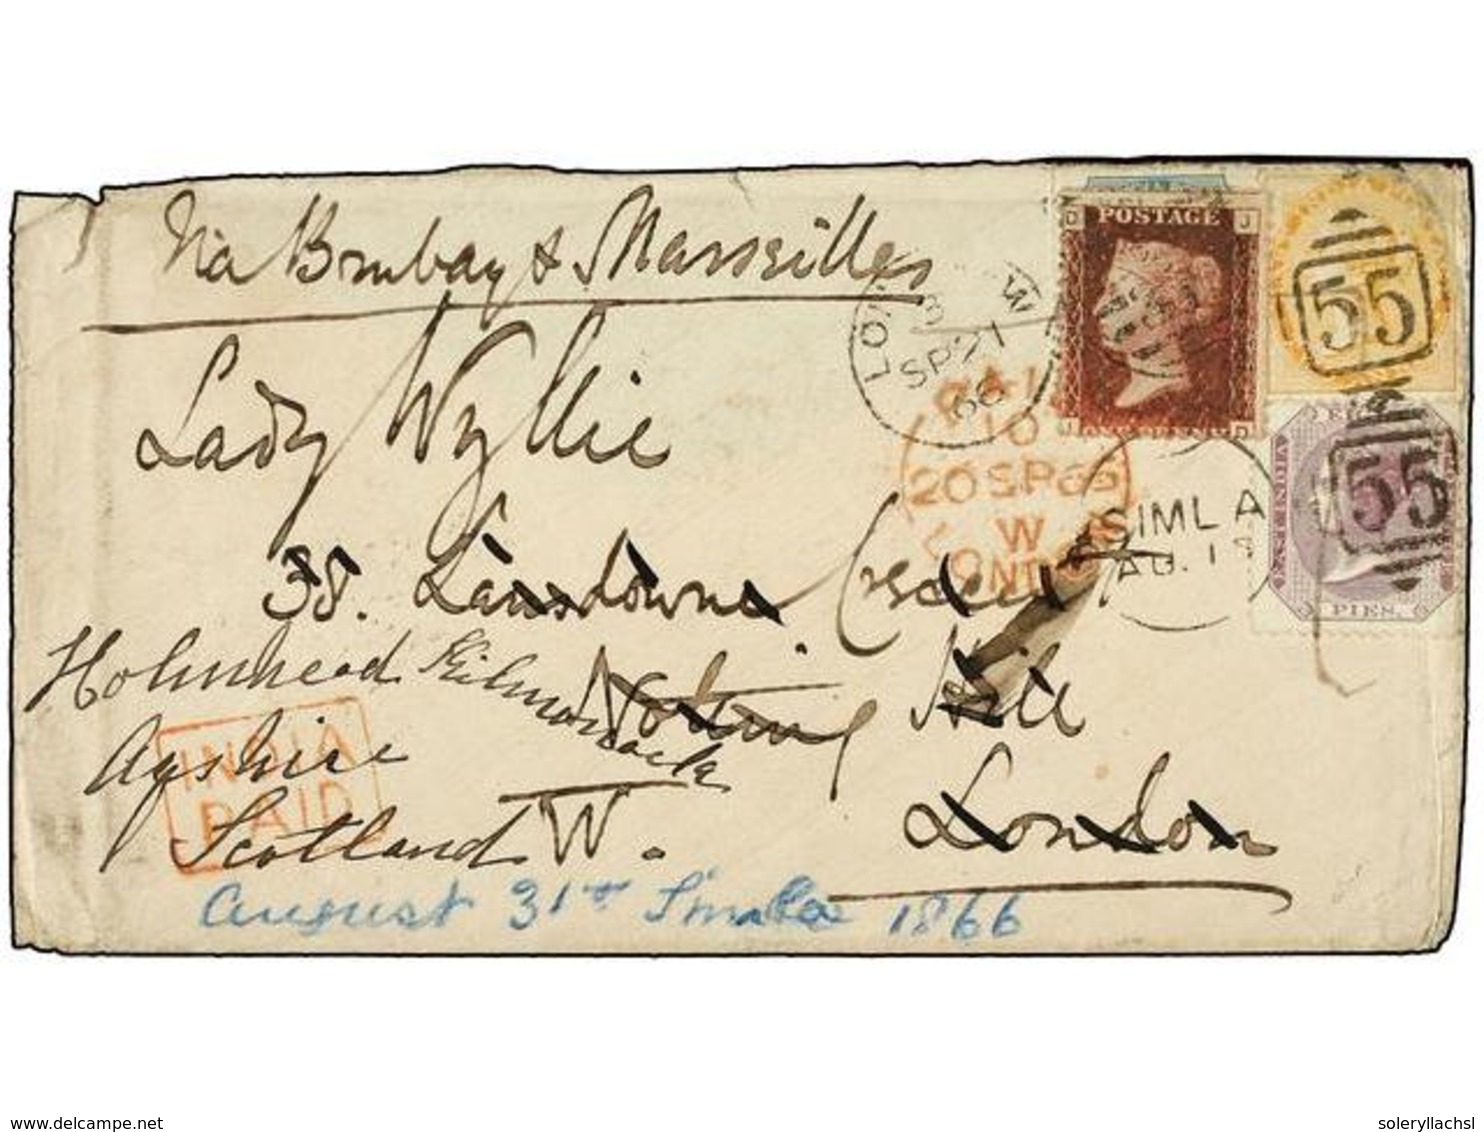 Via Bombay & Marseilles
Lady Wyllie
38. Lansdowne Crescent
Notting Hill
London
W.
Holmhead Kilmarnock
Ayrshire
Scotland
August 31st Simla 1866
POSTAGE
D J
J D
LON
3 W
SP 21
66
PAI
10
20 SP 66
W
LONDON
SIMLA
AU. 1
55
55
EAST INDIA
PIES.
INDIA
PAID
www.delcampe.net
soleryllachsl